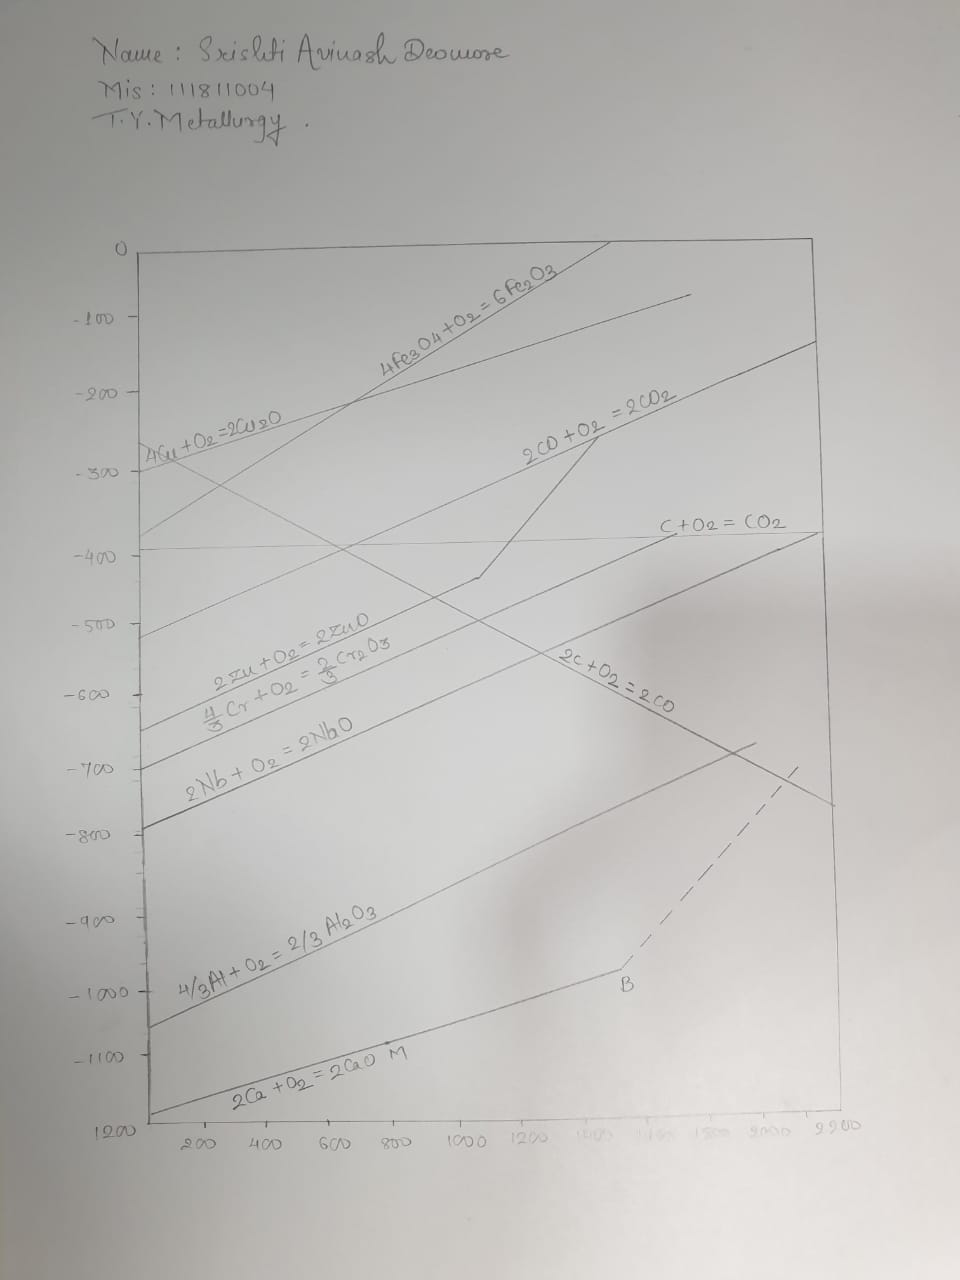 Name : Srishti Avinash Deomore
Mis : 111811004
T.Y. Metallurgy .
0
-100
-200
-300
-400
-500
-600
-700
-800
-900
-1000
-1100
1200
4Fe3O4+O2=6Fe2O3
4Cu+O2=2Cu2O
2CO+O2=2CO2
C+O2=CO2
2Zn+O2=2ZnO
4/3Cr+O2=2/3Cr2O3
2C+O2=2CO
2Nb+O2=2NbO
4/3Al+O2=2/3Al2O3
B
M
2Ca+O2=2CaO
200 400 600 800 1000 1200 1400 1600 1800 2000 2200